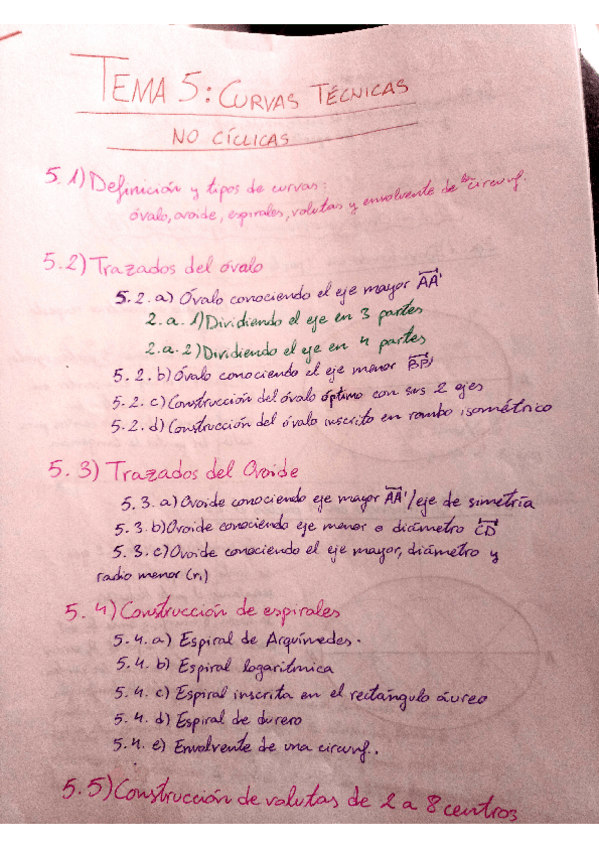 TEMA 5: CURVAS TÉCNICAS
NO CÍCLICAS
5.1) Definición y tipos de curvas:
óvalo, ovoide, espirales, volutas y envolvente de la circunf.
5.2) Trazados del óvalo
5.2.a) Óvalo conociendo el eje mayor AA'
2.a.1) Dividiendo el eje en 3 partes
2.a.2) Dividiendo el eje en 4 partes
5.2.b) Óvalo conociendo el eje menor BB'
5.2.c) Construcción del óvalo óptimo con sus 2 ejes
5.2.d) Construcción del óvalo inscrito en rombo isométrico
5.3) Trazados del Ovoide
5.3.a) Ovoide conociendo eje mayor AA'/eje de simetría
5.3.b) Ovoide conociendo eje menor o diámetro CD
5.3.c) Ovoide conociendo el eje mayor, diámetro y
radio menor (r₁)
5.4) Construcción de espirales
5.4.a) Espiral de Arquímedes.
5.4.b) Espiral logarítmica
5.4.c) Espiral inscrita en el rectángulo áureo
5.4.d) Espiral de durero
5.4.e) Envolvente de una circunf.
5.5) Construcción de volutas de 2 a 8 centros